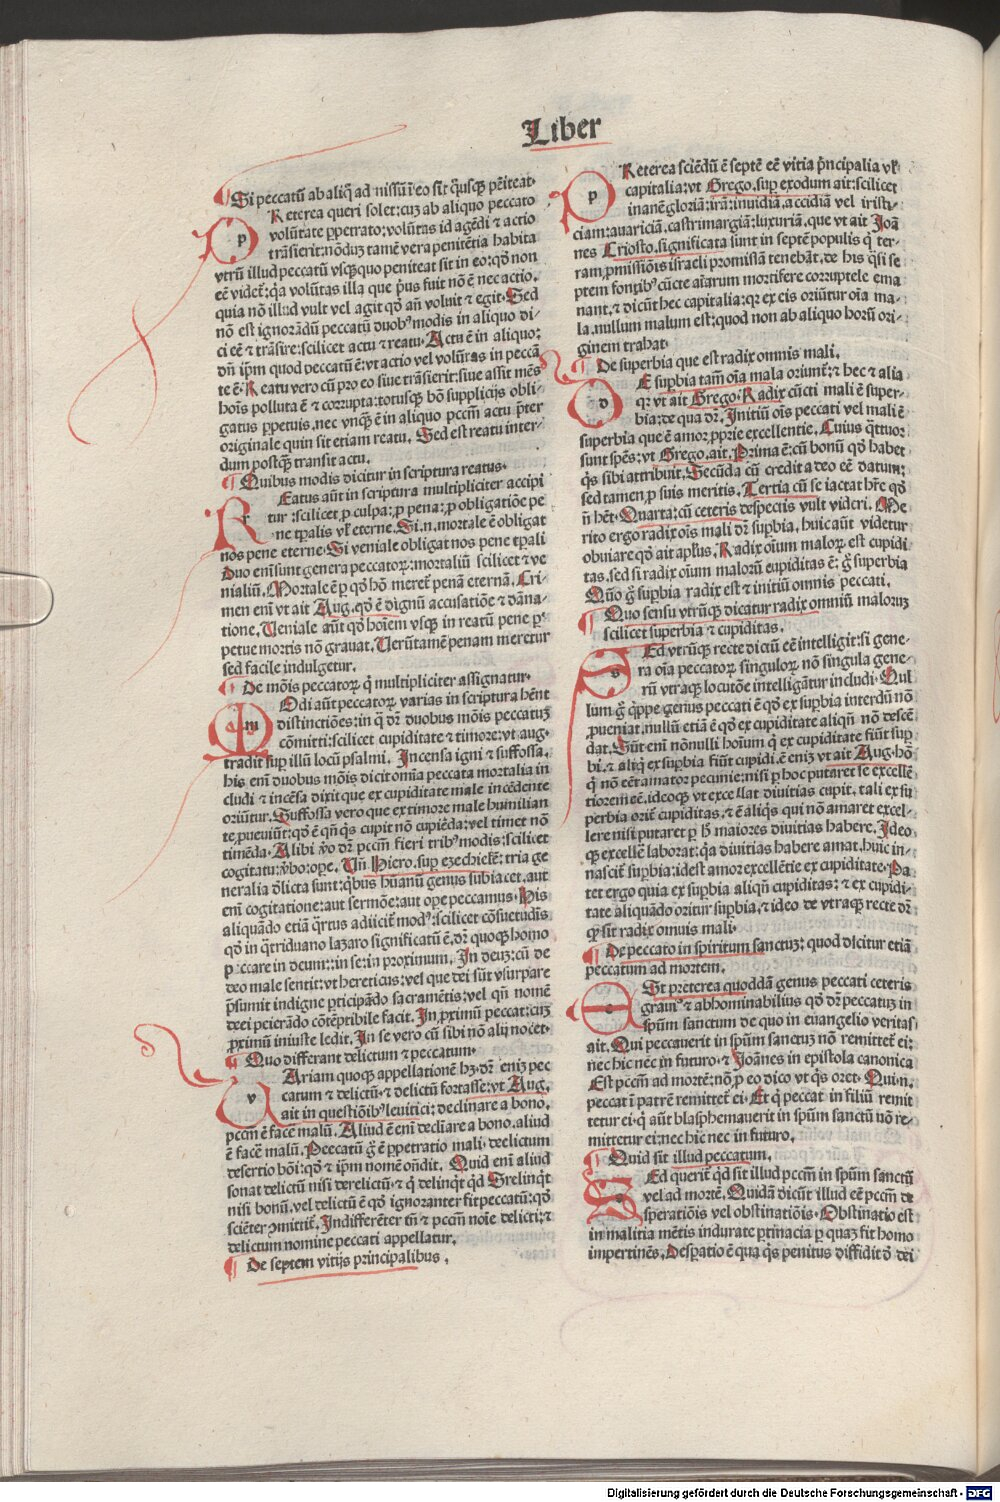 Liber
¶ Si peccatū ab aliq̄ admissū ī eo sit q̄usq̄ȝ peīteat·
PReterea queri solet: cuȝ ab aliquo peccato
volūtate ꝑpetrato: volūtas id agēdi ⁊ actio
trāsierit: nōduȝ tamē vera penitētia habita
vtrū illud peccatū vsq̄quo peniteat sit in eo: qd̄ non
eē videt᷑: q̄a volūtas illa que p̄us fuit nō ē nec actio,
quia nō illud vult vel agit qd̄ añ voluit ⁊ egit· Sed
nō est ignorādū peccatū duobꝰ modis in aliquo di-
ci eē ⁊ trāsire: scilicet actu ⁊ reatu· Actu ē in aliquo:
dū ip̄m quod peccatū ē: vt actio vel volūtas in peccā
te ē· Reatu vero cū pro eo siue trāsierit: siue assit mēs
hoīs polluta ē ⁊ corrupta: totusq̄ȝ hō supplicijs obli-
gatus ꝑpetuis, nec vnq̄ȝ ē in aliquo pccm̄ actu p̄ter
originale quin sit etiam reatu, Sed est reatu inter-
dum postq̄ȝ transit actu.
¶ Quibus modis dicitur in scriptura reatus·
REatus aūt in scriptura multipliciter accipi
tur: scilicet ꝓ culpa: ꝓ pena: ꝓ obligatiōe pe
ne tp̄alis vl̓ eterne. Si.n. mortale ē obligat
nos pene eterne· Si veniale obligat nos pene tp̄ali
Duo em̄ sunt genera peccatoꝝ: mortaliū scilicet ⁊ ve
nialiū, Mortale ē ꝑ qd̄ hō meret᷑ penā eternā, Cri-
men em̄ vt ait Aug. qd̄ ē dignū accusatiōe ⁊ dāna-
tione, Veniale aūt qd̄ hoīem vsq̄ȝ in reatū pene ꝑ
petue mortis nō grauat· Verūtamē penam meretur
sed facile indulgetur.
¶ De mōis peccatoꝝ q̄ multipliciter assignatur·
MOdi aūt peccatoꝝ varias in scriptura hn̄t
distinctiōes: in q̄ dr̄ duobus mōis peccatuȝ
cōmitti: scilicet cupiditate ⁊ timore: vt aug·
tradit suꝑ illū locū psalmi· Incensa igni ⁊ suffossa.
his em̄ duobus mōis dicit om̄ia peccata mortalia in
cludi ⁊ incēsa dixit que ex cupiditate male incēdente
oriūtur. Suffossa vero que ex timore male humilian
te ꝓueniūt: qd̄ ē qn̄ q̄s cupit nō cupiēda: vel timet nō
timēda· Alibi v̄o dr̄ pccm̄ fieri tribꝰ modis: scilicet
cogitatu: v̄bo: oꝑe. Un̄ Hiero. suꝑ ezechielē: tria ge
neralia d̄licta sunt: q̄bus hūanū genus subiacet, aut
em̄ cogitatione: aut sermōe: aut oꝑe peccamus· His
aliquādo etiā q̄rtus adijcit᷑ modꝰ: scilicet cōsuetudīs
qd̄ in q̄triduano lazaro significatū ē, dr̄ quoq̄ȝ homo
peccare in deum: in se: in proximum. In deuȝ: cū de
deo male sentit: vt hereticus: vel que dei sūt vsurpare
p̄sumit indigne ꝑticipādo sacramētis: vel qn̄ nomē
dei peierādo cōtēptibile facit. In ꝓximū peccat: cuȝ
ꝓximū iniuste ledit. In se vero cū sibi nō alij nocet·
¶ Quo differant delictum ⁊ peccatum·
VAriam quoq̄ȝ appellationē hȝ. dr̄ enīȝ pec
catum ⁊ delictū· ⁊ delictū fortasse: vt Aug.
ait in questiōibꝰ leuitici: declinare a bono.
pccm̄ ē facē malū, Aliud ē em̄ decliare a bono. aliud
ē facē malū. Peccatū g̊ ē ꝑpetratio mali· delictum
desertio bōi: qd̄ ⁊ ip̄m nomē on̄dit. Quid em̄ aliud
sonat delictū nisi derelictū· ⁊ q̄ delinq̄t qd̄ derelinq̄t
nisi bonū, vel delictū ē qd̄ ignoranter fit peccatū: qd̄
sciēter ꝯmittit᷑. Indifferēter tn̄ ⁊ pccm̄ noīe delicti: ⁊
delictum nomine peccati appellatur.
¶ De septem vitijs principalibus.
PReterea sciēdū ē septē eē vitia p̄ncipalia vl̓
capitalia: vt Grego. suꝑ exodum ait: scilicet
inanē gloriā: irā: inuidiā, accidiā vel tristi-
ciam: auariciā, castrimargiā: luxuriā, que vt ait Joā
nes Crisosto. significata sunt in septē populis q̄ ter-
ram ꝓmissiōis israeli promissā tenebāt, de his q̄si se
ptem fontibꝰ cūcte aīarum mortifere corruptele ema
nant, ⁊ dicūt hec capitalia: qꝛ ex eis oriūtur oīa ma-
la. nullum malum est: quod non ab aliquo horū ori-
ginem trahat·
¶ De superbia que est radix omnis mali.
DE suꝑbia tam̄ oīa mala oriunt᷑: ⁊ hec ⁊ alia
qꝛ vt ait Grego· Radix cūcti mali ē super-
bia: de qua dr̄. Initiū oīs peccati vel mali ē
superbia que ē amor ꝓprie excellentie. Cuius q̄ttuor
sunt sp̄es: vt Grego. ait. Prima ē: cū bonū qd̄ habet
q̄s sibi attribuit. Secūda cū credit a deo eē datum:
sed tamen ꝓ suis meritis. Tertia cū se iactat hr̄e qd̄
n̄ hēt· Quarta: cū ceteris despectis vult videri. Me
rito ergo radix oīs mali dr̄ suꝑbia, huic aūt videtur
obuiare qd̄ ait apl̄us, Radix oīum maloꝝ est cupidi
tas, sed si radix oīum malorū cupiditas ē: g̊ superbia
Quō g̊ suꝑbia radix est ⁊ initiū omnis peccati.
¶ Quo sensu vtrūq̄ȝ dicatur radix omniū maloruȝ
scilicet superbia ⁊ cupiditas.
SEd vtrūq̄ȝ recte dictū eē intelligit᷑: si gene-
ra oīa peccatoꝝ singuloꝝ nō singula gene-
rū vtraq̄ȝ locutōe intelligātur includi· Nul
lum g̊ q̄ppe genus peccati ē qd̄ ex suꝑbia interdū nō
ꝓueniat, nullū etiā ē qd̄ ex cupiditate aliqn̄ nō descē
dat. Sūt em̄ nōnulli hoīum q̄ ex cupiditate fiūt suꝑ
bi, ⁊ aliq̄ ex suꝑbia fiūt cupidi. ē enīȝ vt ait Aug· hō
q̄ nō eēt amator pecunie: nisi ꝑ hoc putaret se excellē
tiorem eē, ideoq̄ȝ vt excellat diuitias cupit, tali ex su
perbia orit᷑ cupiditas, ⁊ ē aliq̄s qui nō amaret excel-
lere nisi putaret ꝑ h̄ maiores diuitias habere, Ideo
q̄ȝ excellē laborat: q̄a diuitias habere amat. huic in-
nascit᷑ suꝑbia: idest amor excellētie ex cupiditate· Pa
tet ergo quia ex suꝑbia aliqn̄ cupiditas: ⁊ ex cupidi-
tate aliquādo oritur suꝑbia, ⁊ ideo de vtraq̄ȝ recte dr̄
ꝙ sit radix omnis mali·
¶ De peccato in spiritum sanctuȝ: quod dicitur etiā
peccatum ad mortem.
ESt preterea quoddā genus peccati ceteris
grauiꝰ ⁊ abhominabilius qd̄ dr̄ peccatuȝ in
sp̄um sanctum de quo in euangelio veritas
ait. Qui peccauerit in sp̄um sanctuȝ nō remittet᷑ ei:
nec hic nec in futuro· ⁊ Joānes in epistola canonica
Est pccm̄ ad mortē: nō ꝓ eo dico vt q̄s oret· Qui.n.
peccat ī patrē remittet᷑ ei· Et q̄ peccat in filiū remit
tetur ei· q̄ aūt blasphemauerit in sp̄um sanctū nō re-
mittetur ei: nec hic nec in futuro.
¶ Quid sit illud peccatum.
SEd querit᷑ qd̄ sit illud pccm̄ in sp̄um sanctū
vel ad mortē. Quidā dicūt illud eē pccm̄ de
speratiōis vel obstinatiōis· Obstinatio est
in malitia mētis indurate ꝑtinacia ꝑ quaȝ fit homo
impenitēs, Desꝑatio ē qua q̄s penitus diffidit d̄ dei
Digitalisierung gefördert durch die Deutsche Forschungsgemeinschaft - DFG